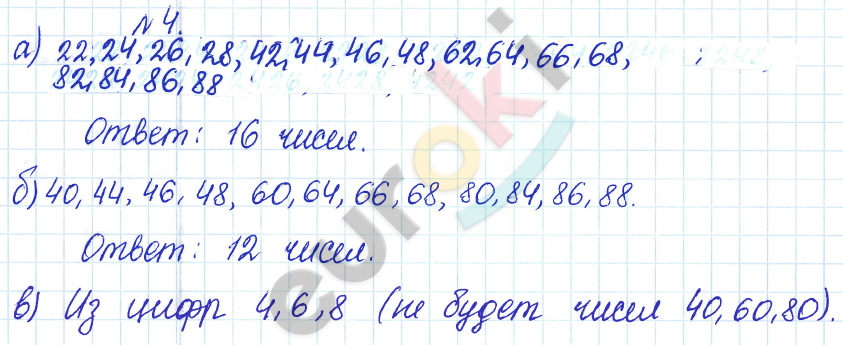 № 4.
а) 22, 24, 26, 28, 42, 44, 46, 48, 62, 64, 66, 68,
82, 84, 86, 88
Ответ: 16 чисел.
б) 40, 44, 46, 48, 60, 64, 66, 68, 80, 84, 86, 88.
Ответ: 12 чисел.
в) Из цифр 4, 6, 8 (не будет чисел 40, 60, 80).
euroki